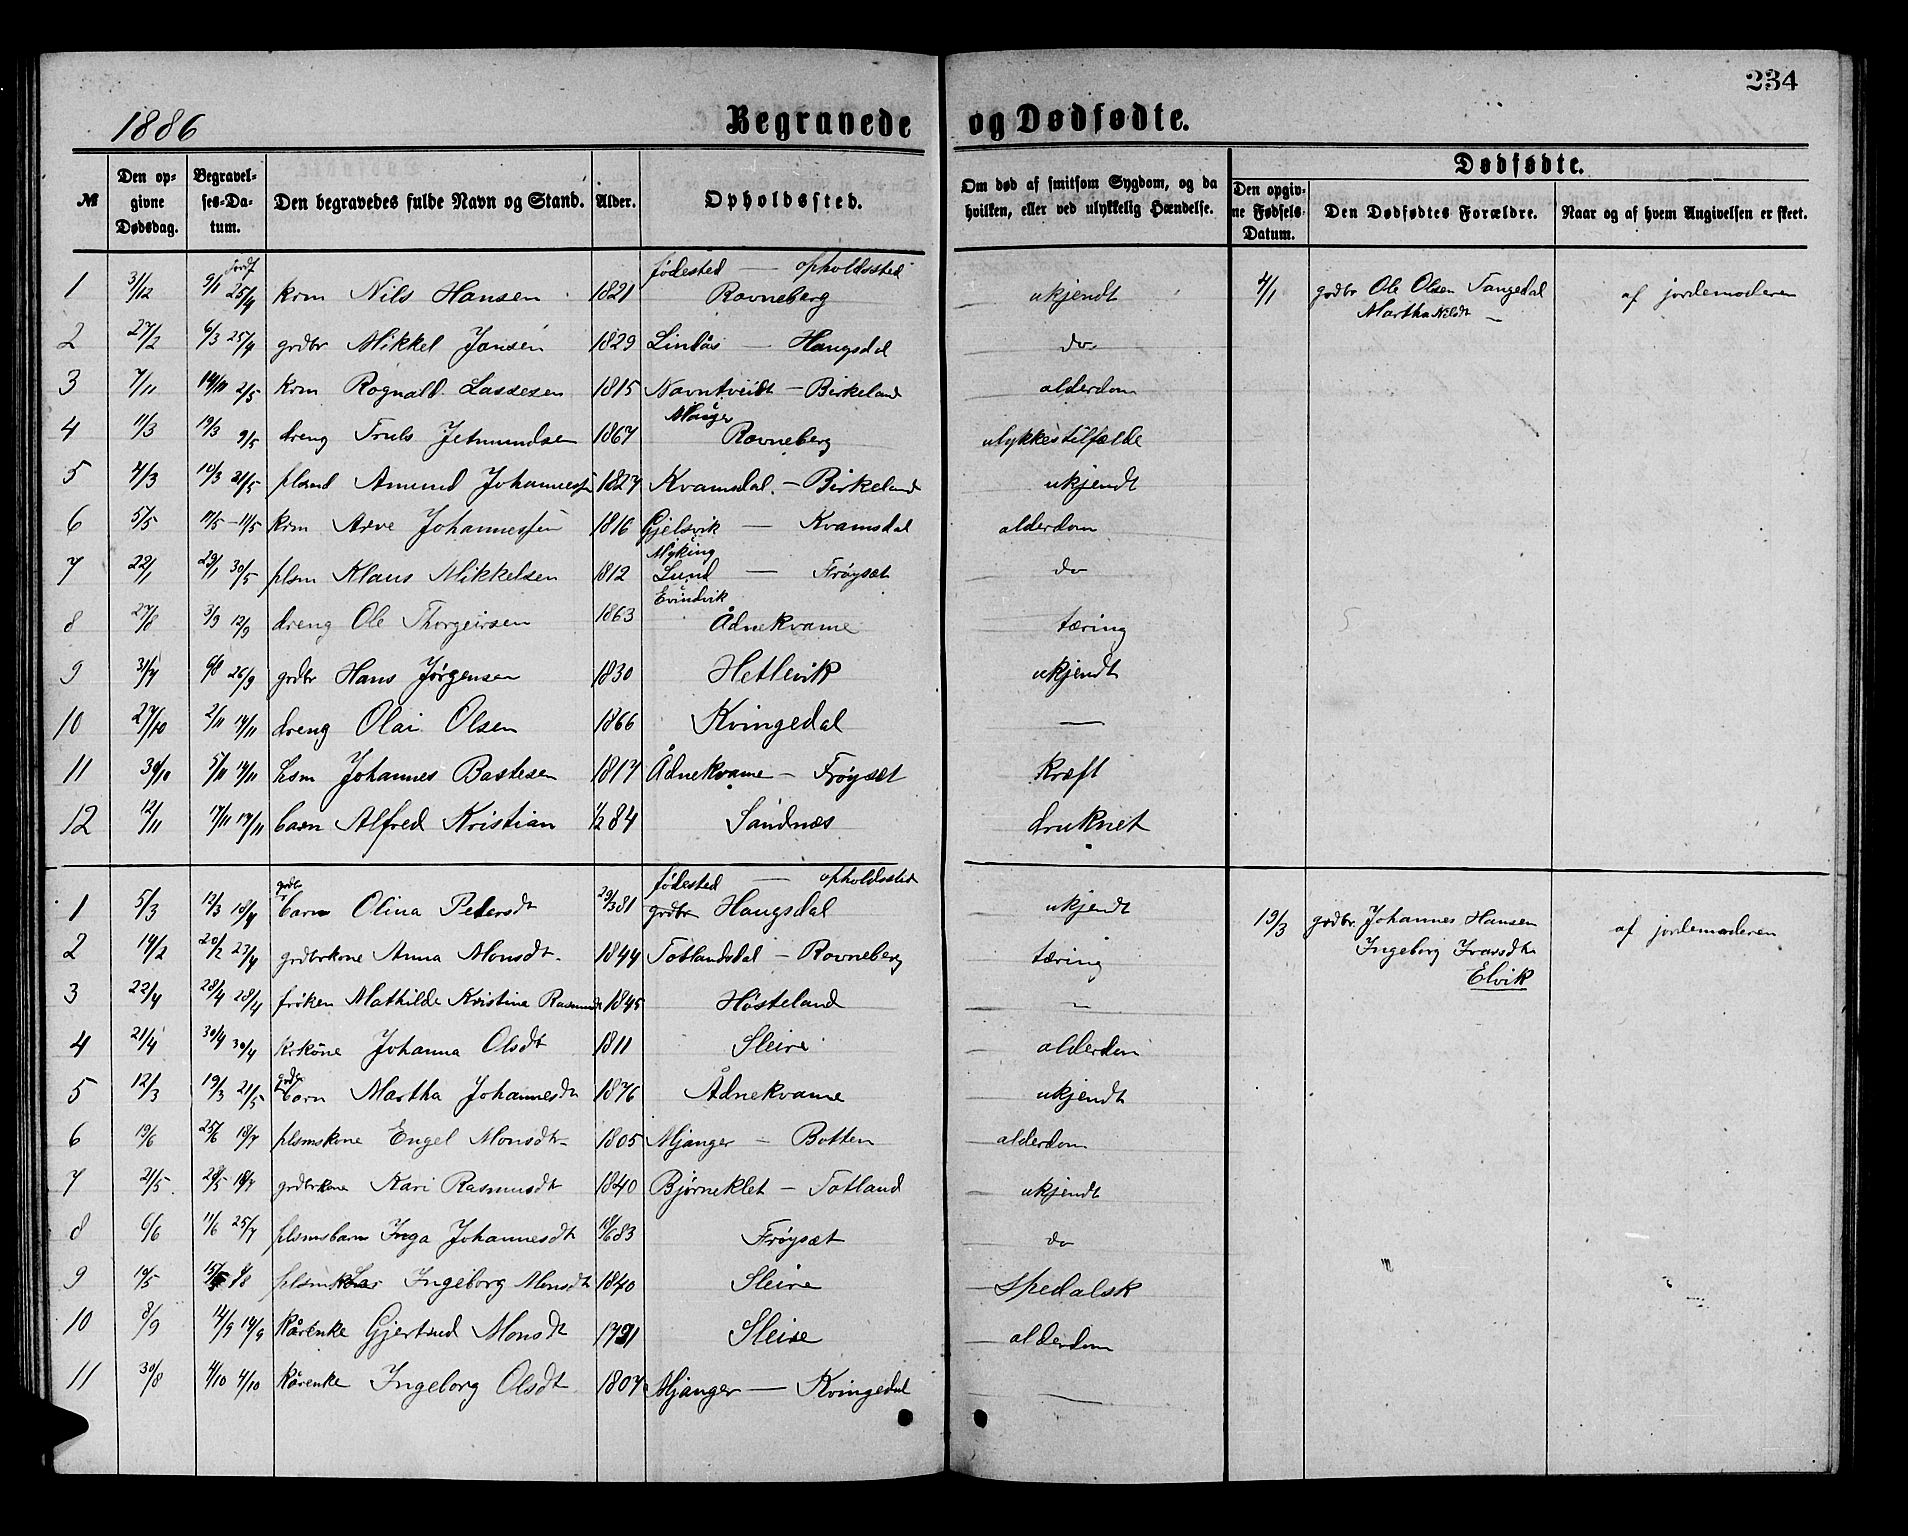 234
1886 Begravede og Dødfødte.
№ Den opgivne Dødsdag. Begravelses-Datum. Den begravedes fulde Navn og Stand. Alder. Opholdssted. Om død af smitsom Sygdom, og da hvilken, eller ved ulykkelig Hændelse. Dødfødte. Den opgivne Fødsels-Datum. Den Dødfødtes Forældre. Naar og af hvem Angivelsen er skeet.
fødested — opholdssted
1 31/12 9/1 jordf 25/4 krm Nils Hansen 1821 Rovneberg ukjendt 4/1 grdbr Ole Olsen Tangedal af jordemoderen
Martha Nilsdt —
2 27/2 6/3 25/4 grdbr Mikkel Jansen 1829 Lindås — Haugsdal do
3 7/11 14/11 2/5 krm Rognald Lassesen 1815 Navntveidt — Birkeland alderdom
4 11/3 19/3 9/5 dreng Truls Jetmundsen 1867 Mauger Rovneberg ulykkestilfælde
5 4/3 10/3 21/5 plsmd Amund Johannessn 1827 Kvamsdal — Birkeland ukjendt
6 5/5 11/5 — 11/5 krm Arve Johannessen 1816 Gjelsvik — Kvamsdal alderdom
7 22/1 29/1 30/5 plsm Klaus Mikkelsen 1812 Myking Lund — Frøyset do
8 27/8 3/9 12/9 dreng Ole Thorgeirsen 1863 Evindvik Ådnekvame tæring
9 31/7 6/8 26/9 grdbr Hans Jørgensen 1830 Hetlevik ukjendt
10 27/10 2/11 14/11 dreng Olai Olsen 1866 Kvingedal —
11 30/10 5/11 14/11 hsm Johannes Bastesen 1817 Ådnekvame — Frøyset kræft
12 12/11 17/11 17/11 barn Alfred Kristian 1/2 84 Sandnæs druknet
fødested — opholdssted
1 5/3 12/3 18/4 grdbr barn Olina Petersdt 29/3 81 grdbr Haugsdal ukjendt 19/3 grdbr. Johannes Hansen af jordemoderen
2 14/2 20/2 27/4 grdbrkone Anna Monsdt. 1844 Totlandsdal — Rovneberg tæring Ingeborg Ivarsdtr
Elvik
3 22/4 28/4 28/4 frøken Mathilde Kristina 1845 Høsteland —
4 21/4 30/4 30/4 krkone Johanna Olsdt 1811 Sleire alderdom
5 12/3 19/3 21/5 grdbr barn Martha Johannesdt 1876 Ådnekvame ukjendt
6 19/6 25/6 18/7 plsmskone Engel Monsdt — 1805 Mjanger — Botten alderdom
7 21/5 28/5 18/7 grdbrkone Kari Rasmusdt 1840 Bjørneklet — Totland ukjendt
8 6/6 11/6 25/7 plsmsbarn Inga Johannesdt 10/6 83 Frøyset do
9 10/5 15/5 8/8 Ingeborg Monsdt 1840 Sleire spedalsk
10 8/9 14/9 14/9 kårenke Gjertrud Monsdt 1791 Sleire alderdom
11 30/8 4/10 4/10 kårenke Ingeborg Olsdt 1807 Mjanger — Kvingedal —